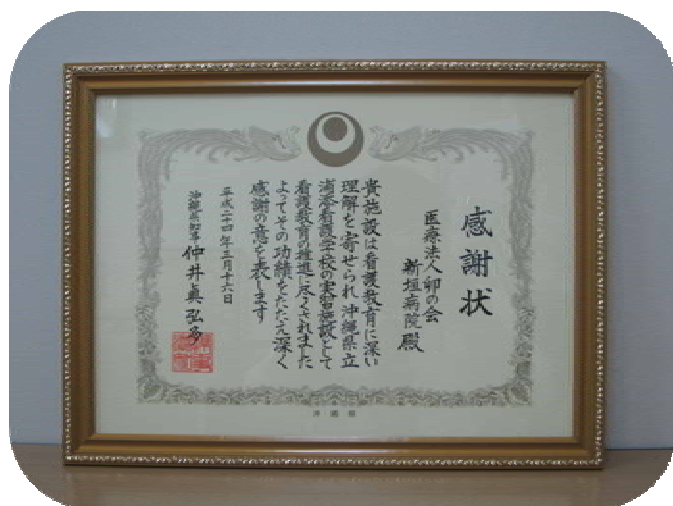 感謝状
医療法人卯の会
新垣病院殿
貴施設は看護教育に深い
理解を寄せられ沖縄県立
浦添看護学校の実習施設として
看護教育の推進に尽くされました
よってその功績をたたえ深く
感謝の意を表します
平成二十四年三月十六日
沖縄県知事 仲井眞弘多
沖縄県